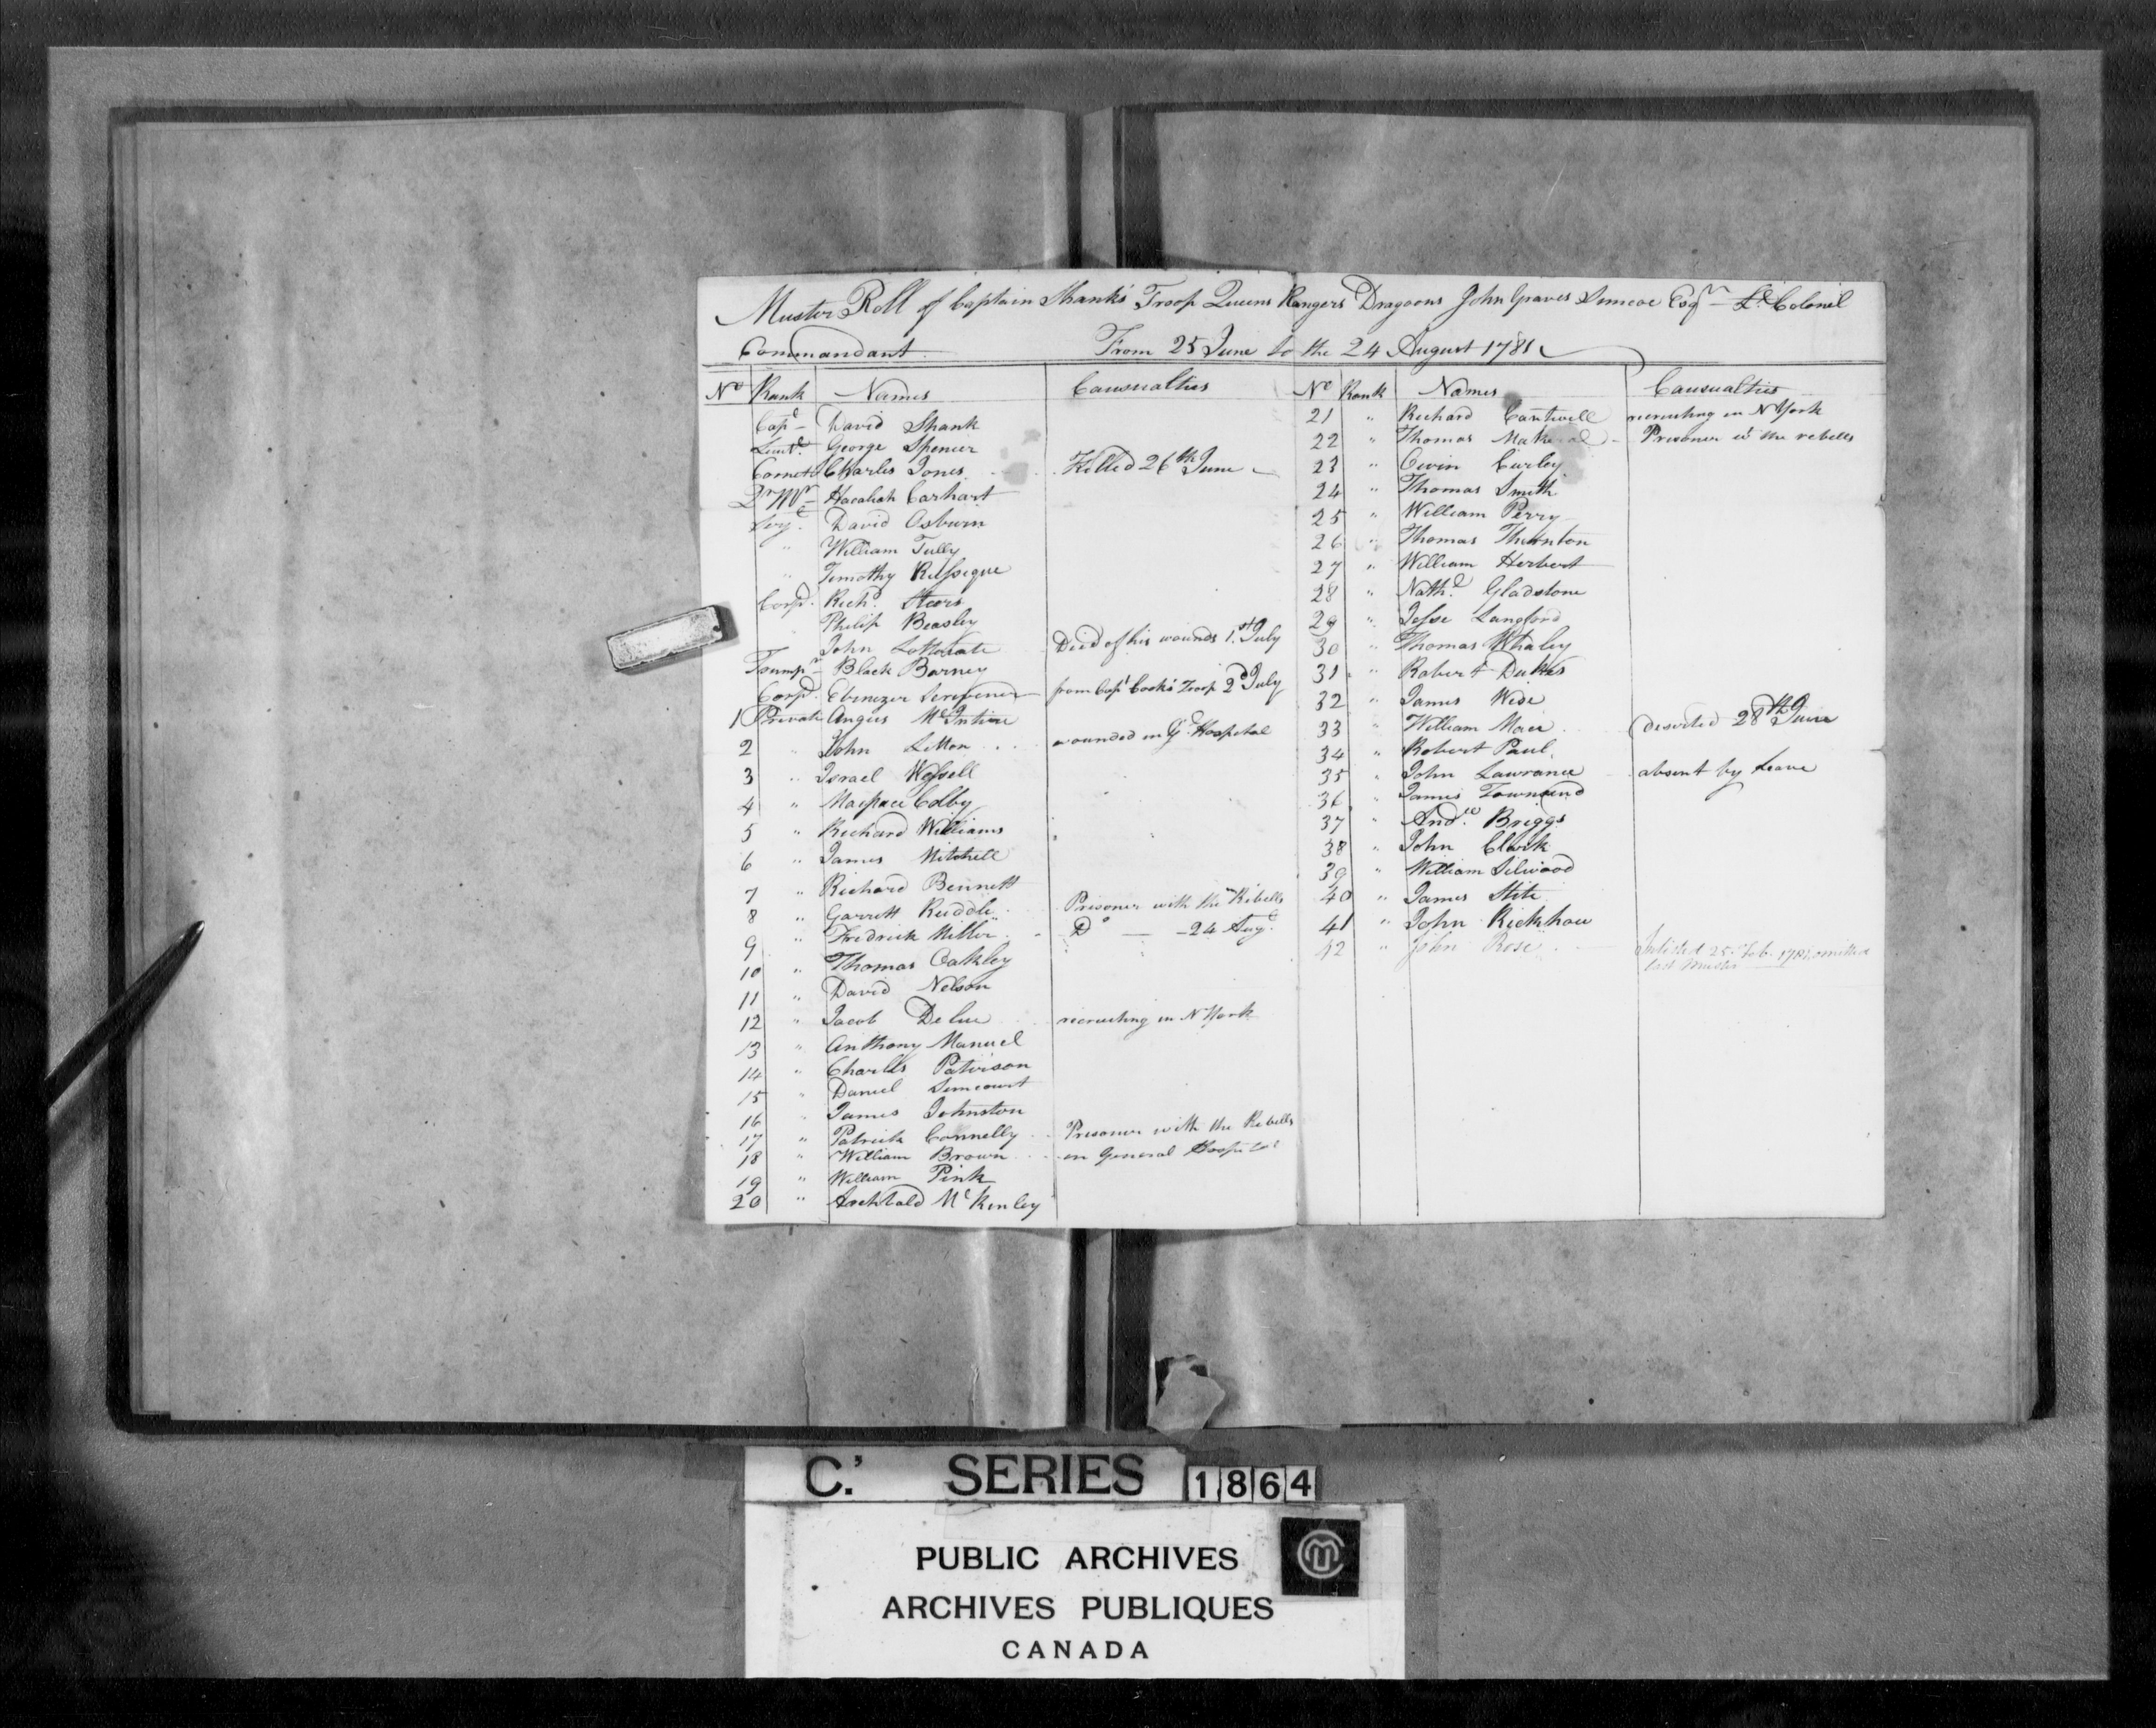 Muster Roll of Captain Shank's Troop Queens Rangers Dragoons John Graves Simcoe Esqr Lt Colonel
Commandant From 25 June to the 24 August 1781
No Rank Names Causualties
Capt David Shank
Lieut George Spencer
Cornet Charles Jones Killed 26th June
Qr Mr Hacaliah Carhart
Serjt David Osburn
" William Tully
" Timothy Russique
Corpl Richd Steers
Philip Beasley
John Died of his wounds 1st July
Trumpr Black Barney
Corpl Ebenezer Scrivener from Capt Cooks Troop 2d July
1 Private Angus McIntire
2 " John Litton wounded in Gl Hospital
3 " Israel Wessell
4 " Colby
5 " Richard Williams
6 " James Mitchell
7 " Richard Bennett
8 " Garrett Ruddle Prisoner with the Rebells
9 " Fredrick Miller Do — 24 Augt
10 " Thomas Oakley
11 " David Nelson
12 " Jacob Delue recruiting in N York
13 " Anthony Manuel
14 " Charles Paterson
15 " Daniel Simcourt
16 " James Johnston
17 " Patrick Connelly Prisoner with the Rebells
18 " William Brown in General Hospital
19 " William Pink
20 " Archbald McKinley
No Rank Names Causualties
21 " Richard Cantwell recruiting in N York
22 " Thomas Prisoner wt the rebells
23 " Owin Curley
24 " Thomas Smith
25 " William Perry
26 " Thomas Thornton
27 " William Herbert
28 " Nathl Gladstone
29 " Jesse Langford
30 " Thomas Whaley
31 " Robert Dukes
32 " James Wise
33 " William Mace deserted 28th June
34 " Robert Paul
35 " John Lawrance absent by Leave
36 " James Townsend
37 " Andw Briggs
38 " John Clark
39 " William Silwood
40 " James Stite
41 " John Rickhow
42 " John Rose Inlisted 25 Feb 1781, omitted
last Muster
C. SERIES 1864
PUBLIC ARCHIVES
ARCHIVES PUBLIQUES
CANADA